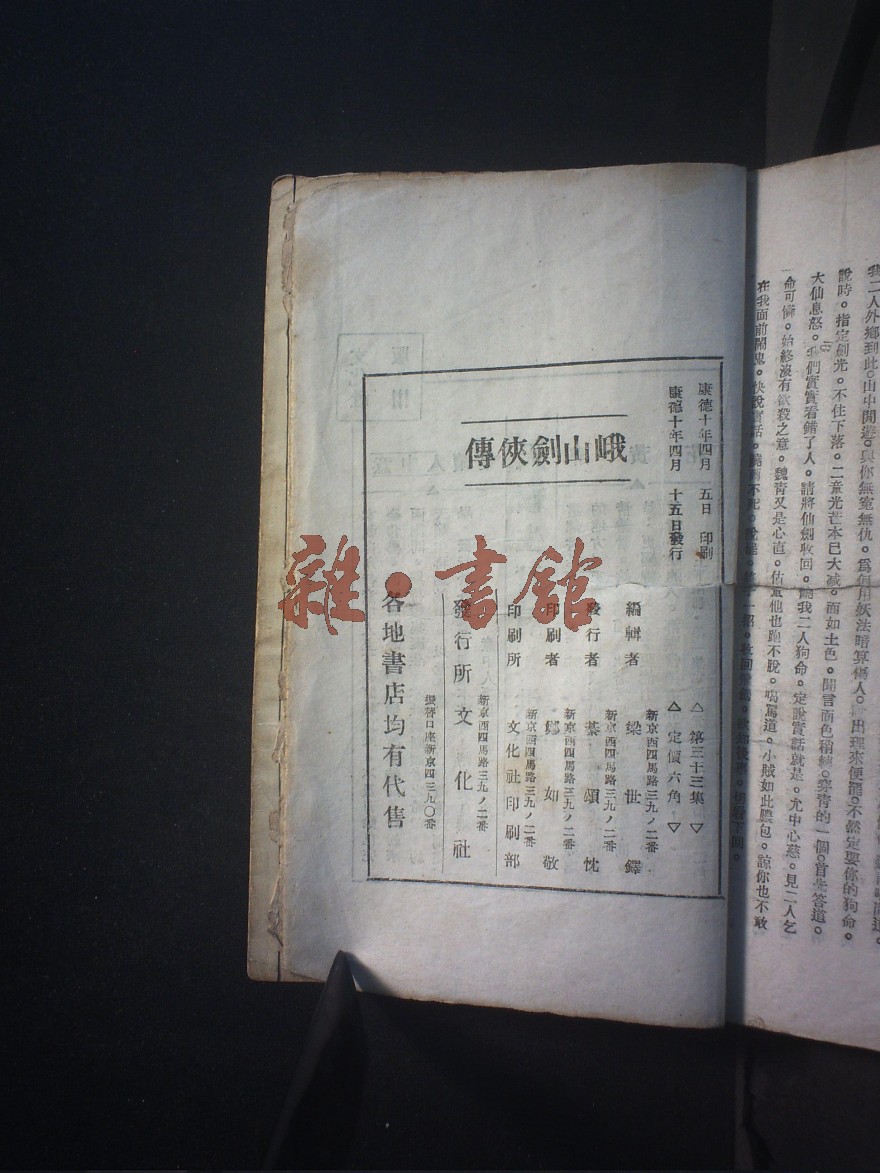 我二人外鄉到此。山中閒遊。與你無寃無仇。爲何用妖法暗算傷人。
說時。指定劍光。不住下落。二童光芒本已大減。面如土色。聞言面色稍轉。穿青的一個。首先答道。
大仙息怒。我們實實看錯了人。請將仙劍收回。饒我二人狗命。定說實話就是。允中心慈。見二人乞
命可憐。始終沒有欲殺之意。魏青又是心直。估量他也跑不脫。喝駡道。小賊如此膿包。諒你也不敢
在我面前鬧鬼。快說實話。饒爾不死。說罷。
康德十年四月 五日 印刷
康德十年四月 十五日發行
峨山劍俠傳
△ 第三十三集 ▽
△ 定價六角 ▽
新京西四馬路三九ノ二番
編輯者 梁世鐸
新京西四馬路三九ノ二番
發行者 綦頌忱
新京西四馬路三九ノ二番
印刷者 鄭如敬
新京西四馬路三九ノ二番
印刷所 文化社印刷部
新京西四馬路三九ノ二番
發行所 文化社
振替口座新京四三九〇番
各地書店均有代售
雜·書館